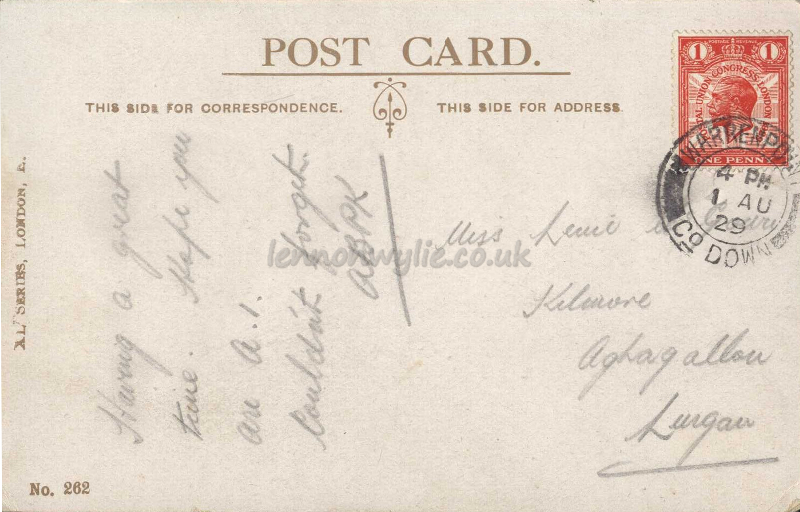 POST CARD.
THIS SIDE FOR CORRESPONDENCE.
THIS SIDE FOR ADDRESS.
"XL" SERIES, LONDON, E.
Having a great
time. Hope you
are A.1.
Couldn't forget.
Miss
Kilmore
Aghagallon
Lurgan
POSTAGE REVENUE
1 1
POSTAL UNION CONGRESS LONDON
ONE PENNY
WARRENPOINT
4 PM
1 AU
29
Co DOWN
lennonwylie.co.uk
No. 262